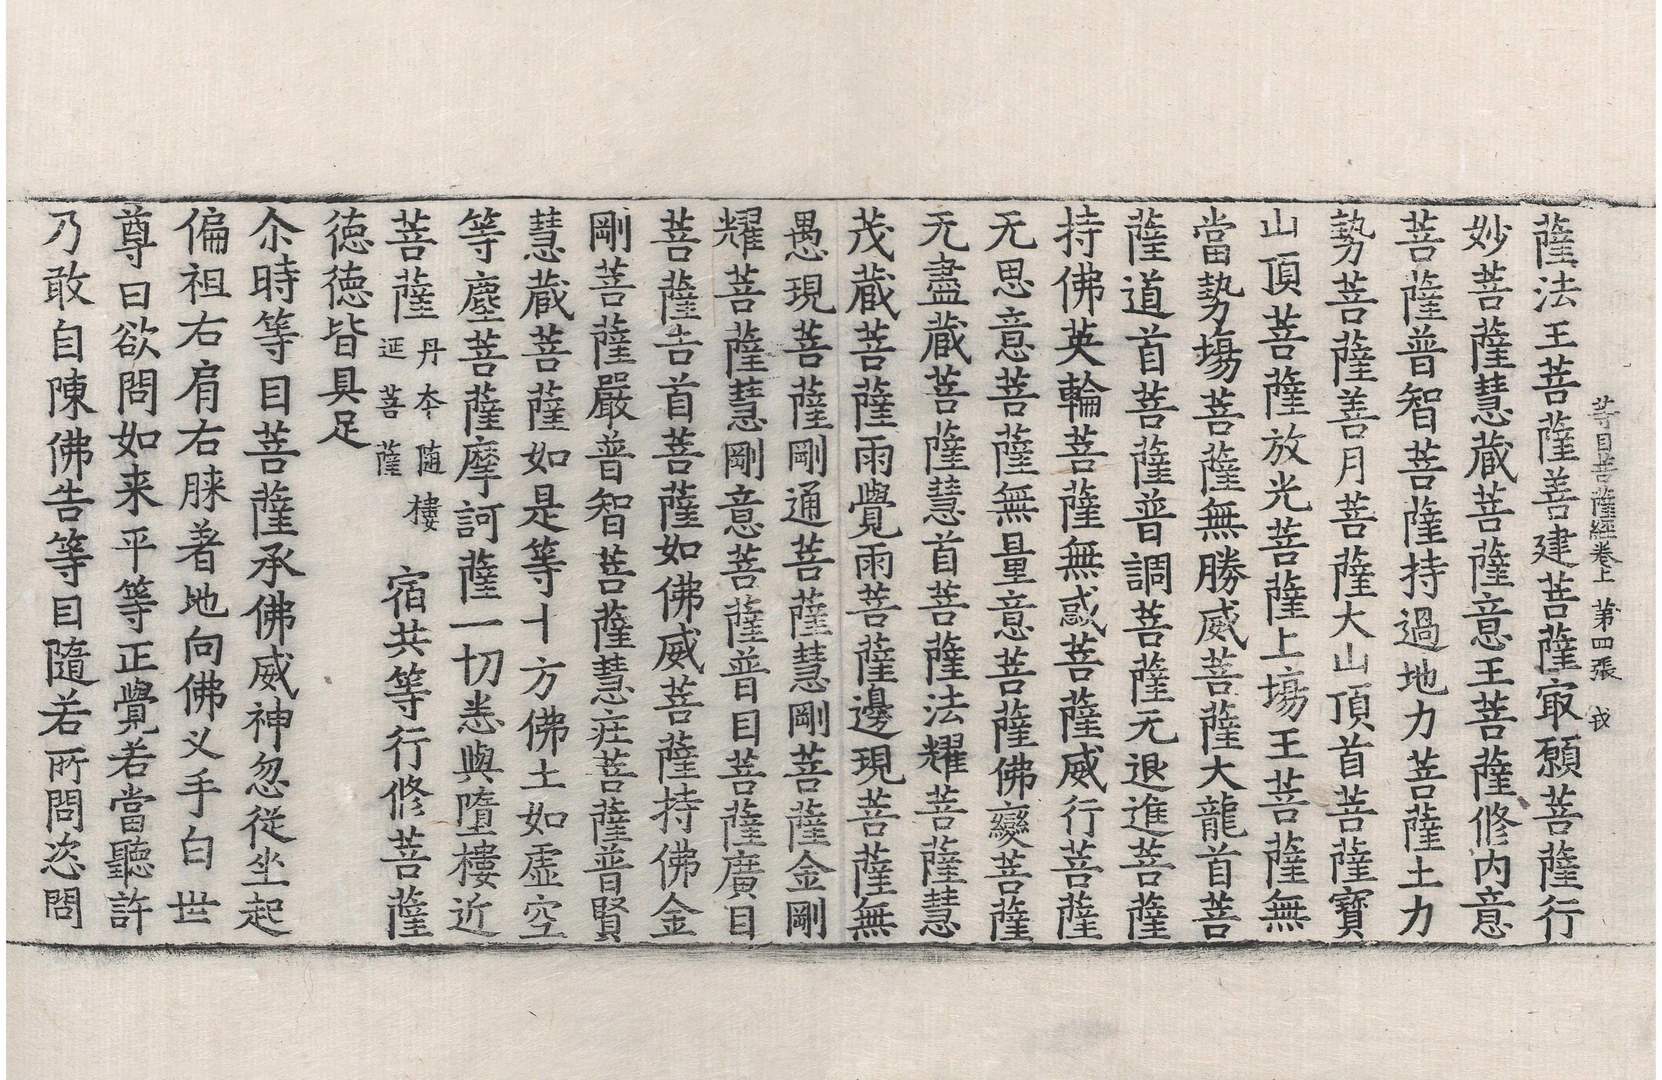 等目菩薩經卷上 第四張 戎
薩法王菩薩善建菩薩㝡願菩薩行
妙菩薩慧蔵菩薩意王菩薩修内意
菩薩普智菩薩持過地力菩薩土力
勢菩薩善月菩薩大山頂首菩薩寶
山頂菩薩放光菩薩上塲王菩薩無
當勢塲菩薩無勝威菩薩大龍首菩
薩道首菩薩普調菩薩无退進菩薩
持佛英輪菩薩無惑菩薩威行菩薩
无思意菩薩無量意菩薩佛變菩薩
无盡蔵菩薩慧首菩薩法耀菩薩慧
茂蔵菩薩雨覺雨菩薩邊現菩薩無
愚現菩薩剛通菩薩慧剛菩薩金剛
耀菩薩慧剛意菩薩普目菩薩廣目
菩薩吿首菩薩如佛威菩薩持佛金
剛菩薩嚴普智菩薩慧疘菩薩普賢
慧蔵菩薩如是等十方佛土如虛空
等塵菩薩摩訶薩一切悉與墮樓近
菩薩丹本隨樓𨒂菩薩宿共等行修菩薩
徳徳皆具足
尒時等目菩薩承佛威神忽從坐起
偏袒右肩右膝著地向佛叉手白世
尊曰欲問如来平等正覺若當聽許
乃敢自陳佛告等目隨若所問恣問